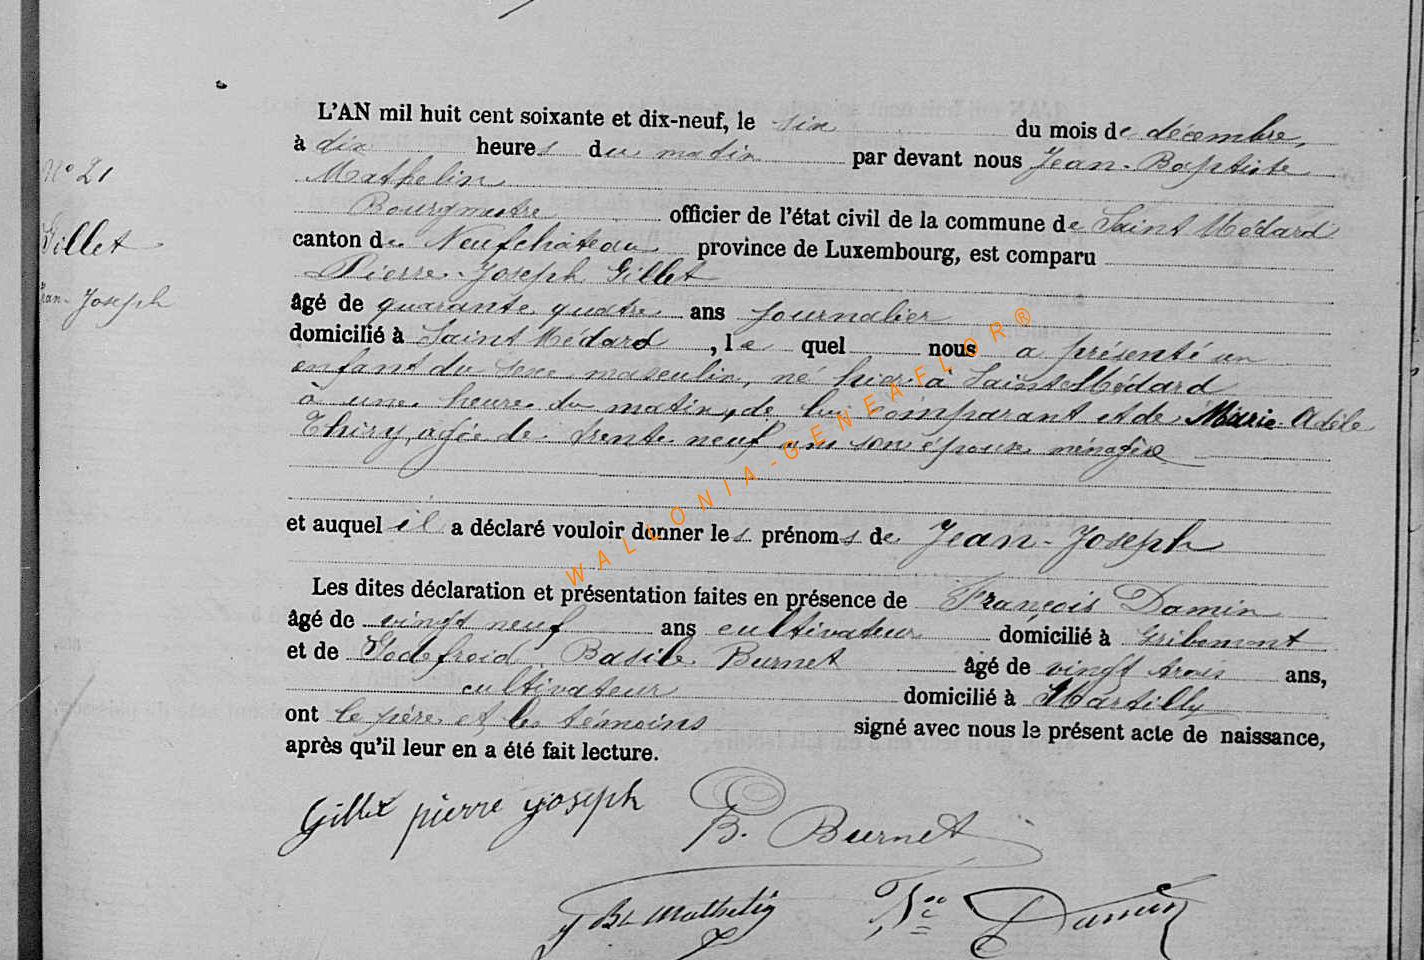 L'AN mil huit cent soixante et dix-neuf, le six du mois de décembre,
à dix heures du matin par devant nous Jean-Baptiste
Mathelin
Bourgmestre officier de l'état civil de la commune de Saint Médard
canton de Neufchâteau province de Luxembourg, est comparu
Pierre-Joseph Gillet
âgé de quarante quatre ans journalier
domicilié à Saint Médard, le quel nous a présenté un
enfant du sexe masculin, né hier à Saint Médard
à une heure du matin, de lui comparant et de Marie-Adèle
Thiry, agée de trente neuf ans son épouse ménagère
et auquel il a déclaré vouloir donner les prénoms de Jean-Joseph
Les dites déclaration et présentation faites en présence de François Damin
âgé de vingt neuf ans cultivateur domicilié à Gribomont
et de Godefroid Basile Burnet âgé de vingt trois ans,
cultivateur domicilié à Martilly
ont le père et les témoins signé avec nous le présent acte de naissance,
après qu'il leur en a été fait lecture.
N° 21
Gillet
Jean-Joseph
Gillet pierre joseph
B. Burnet
J Bte Mathelin
Damin
WALLONIA-GENEAFLOR®